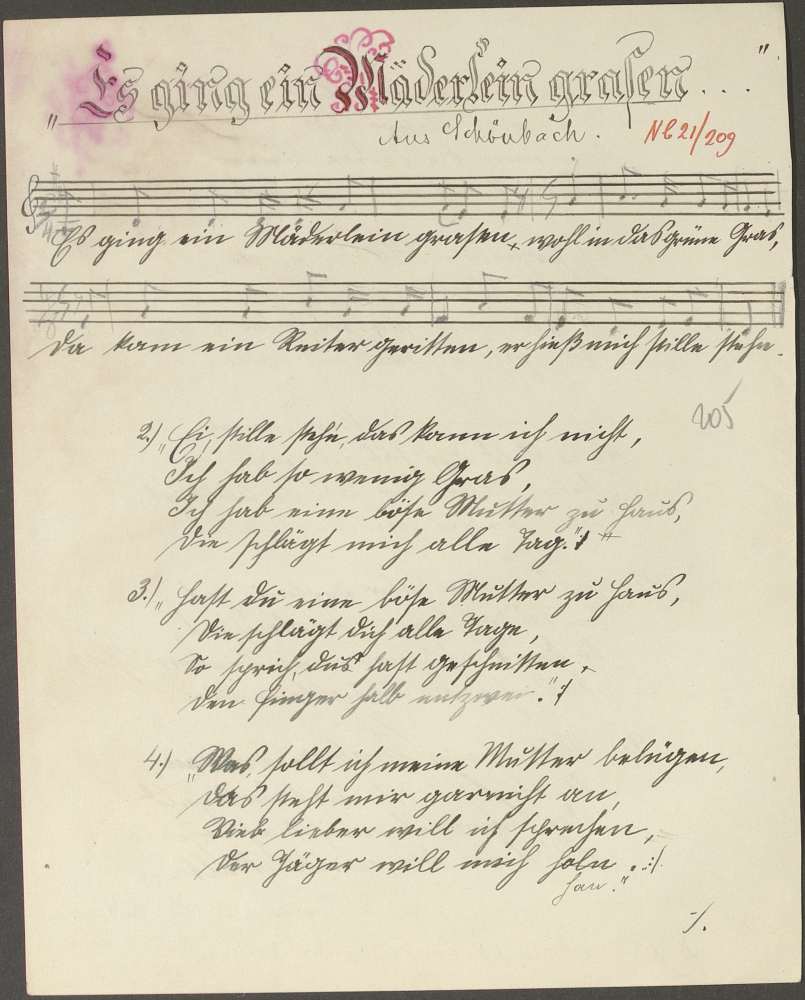 „Es ging ein Mäderlein grasen...."
Aus Schönbach.
Nb 21/209
Es ging ein Mäderlein grasen, wohl in das grüne Gras,
Da kam ein Reiter geritten, er hieß mich stille stehn.
205
2.) „Ei, stille steh'n, das kann ich nicht,
Ich hab so wenig Gras,
Ich hab eine böse Mutter zu Haus,
Die schlägt mich alle Tag."
3.) „Hast du eine böse Mutter zu Haus,
Die schlägt dich alle Tage,
So sprich, du hast geschnitten,
Den Finger halb entzwei." :/
4.) „Was, sollt ich meine Mutter belügen,
Das steht mir garnicht an,
Viel lieber will ich sprechen,
Der Jäger will mich holn. :/
han."
./.